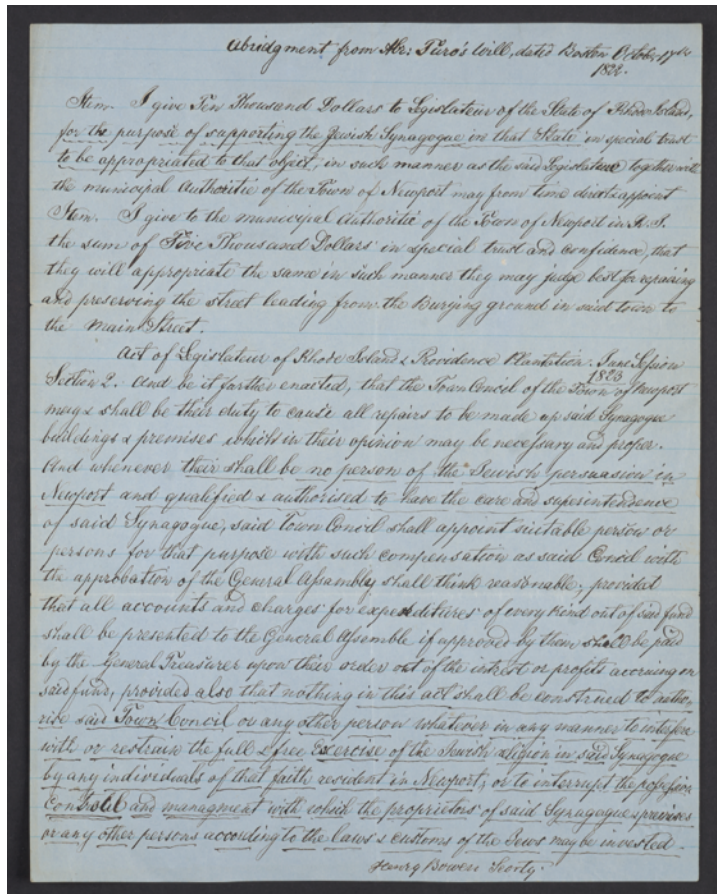 Abridgment from Abr: Turo's Will, dated Boston October 17th
1822.
Item. I give Ten Thousand Dollars to Legislateur of the State of Rhode Island,
for the purpose of supporting the Jewish Synagogue in that State in special trust
to be appropriated to that object, in such manner as the said Legislateur together with
the municipal Authoritie of the Town of Newport may from time direct & appoint
Item. I give to the municipal Authoritie of the Town of Newport in R. I.
the sum of Five Thousand Dollars in special trust and confidence, that
they will appropriate the same in such manner they may judge best for repairing
and preserving the street leading from the Burying ground in said town to
the Main Street.
Act of Legislateur of Rhode Island & Providence Plantation. June Session
1823
Section 2. And be it farther enacted, that the Town Concil of the Town of Newport
may & shall be their duty to cause all repairs to be made up said Synagogue
buildings & premises which in their opinion may be necessary and proper.
And whenever their shall be no person of the Jewish persuasion in
Newport and qualified & authorised to have the care and superintendence
of said Synagogue, said Town Concil shall appoint suitable person or
persons for that purpose with such compensation as said Concil with
the approbation of the General Assembly shall think reasonable, provided
that all accounts and charges for expenditures of every kind out of said fund
shall be presented to the General Assemble if approved by them shall be paid
by the General Treasurer upon their order out of the interest or profits accruing on
said fund, provided also that nothing in this act shall be construed to autho,
rise said Town Concil or any other person whatever in any manner to interfere
with or restrain the full & free Exercise of the Jewish religion in said Synagogue
by any individuals of that faith resident in Newport, or to interrupt the possession
Controlel and managment with which the proprietors of said Synagague & premises
or any other persons according to the laws & customs of the Jews may be invested.
Henry Bowen Secrty.